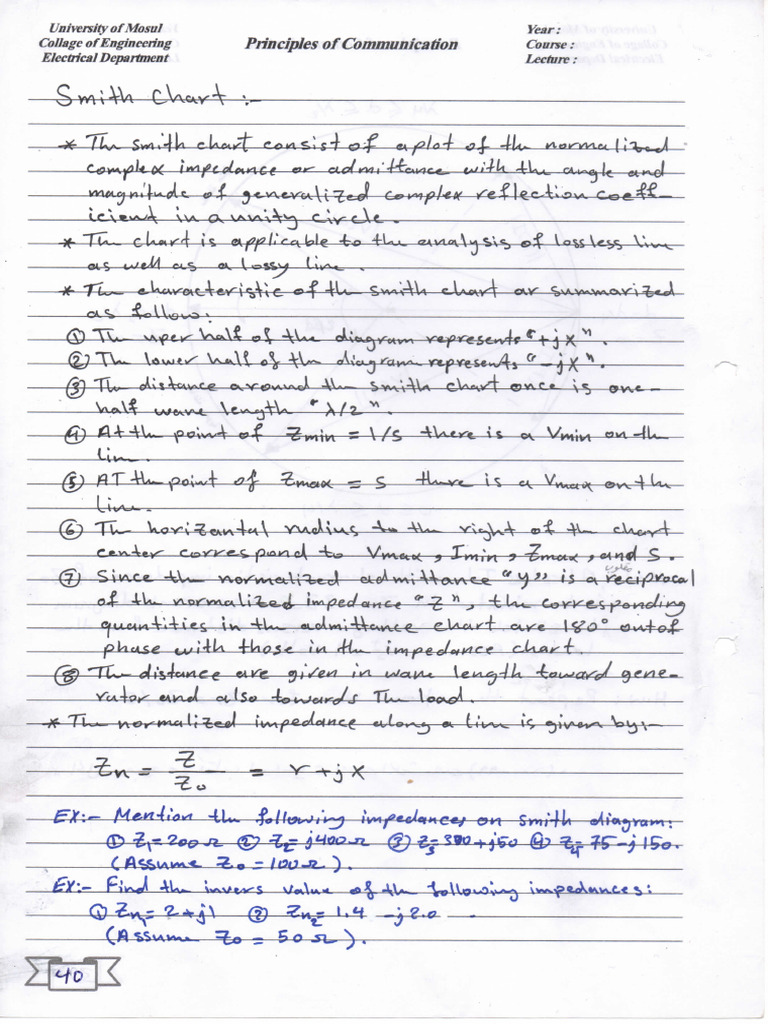 University of Mosul
Collage of Engineering
Electrical Department
Principles of Communication
Year :
Course :
Lecture :
Smith Chart :-
* The smith chart consist of a plot of the normalized
complex impedance or admittance with the angle and
magnitude of generalized complex reflection coeff-
icient in a unity circle.
* The chart is applicable to the analysis of lossless line
as well as a lossy line.
* The characteristic of the smith chart ar summarized
as follow:
① The uper half of the diagram represents "+jX".
② The lower half of the diagram represents "-jX".
③ The distance around the smith chart once is one-
half wave length "λ/2".
④ At the point of Zmin = 1/S there is a Vmin on the
line.
⑤ AT the point of Zmax = S there is a Vmax on the
line.
⑥ The horizantal radius to the right of the chart
center correspond to Vmax, Imin, Zmax, and S.
⑦ Since the normalized admittance "y" is a reciprocal
of the normalized impedance "Z", the corresponding
quantities in the admittance chart are 180° out of
phase with those in the impedance chart.
⑧ The distance are given in wave length toward gene-
rator and also towards The load.
* The normalized impedance along a line is given by:-
Zn = Z/Z₀ = r + jX
EX:- Mention the following impedances on smith diagram:
① Z₁=200Ω ② Z₂=j400Ω ③ Z₃=300+j50 ④ Z₄=75-j150.
(Assume Z₀ = 100Ω).
EX:- Find the invers value of the following impedances:
① Zn₁= 2+j1 ② Zn₂= 1.4 -j2.0
(Assume Z₀ = 50Ω).
40